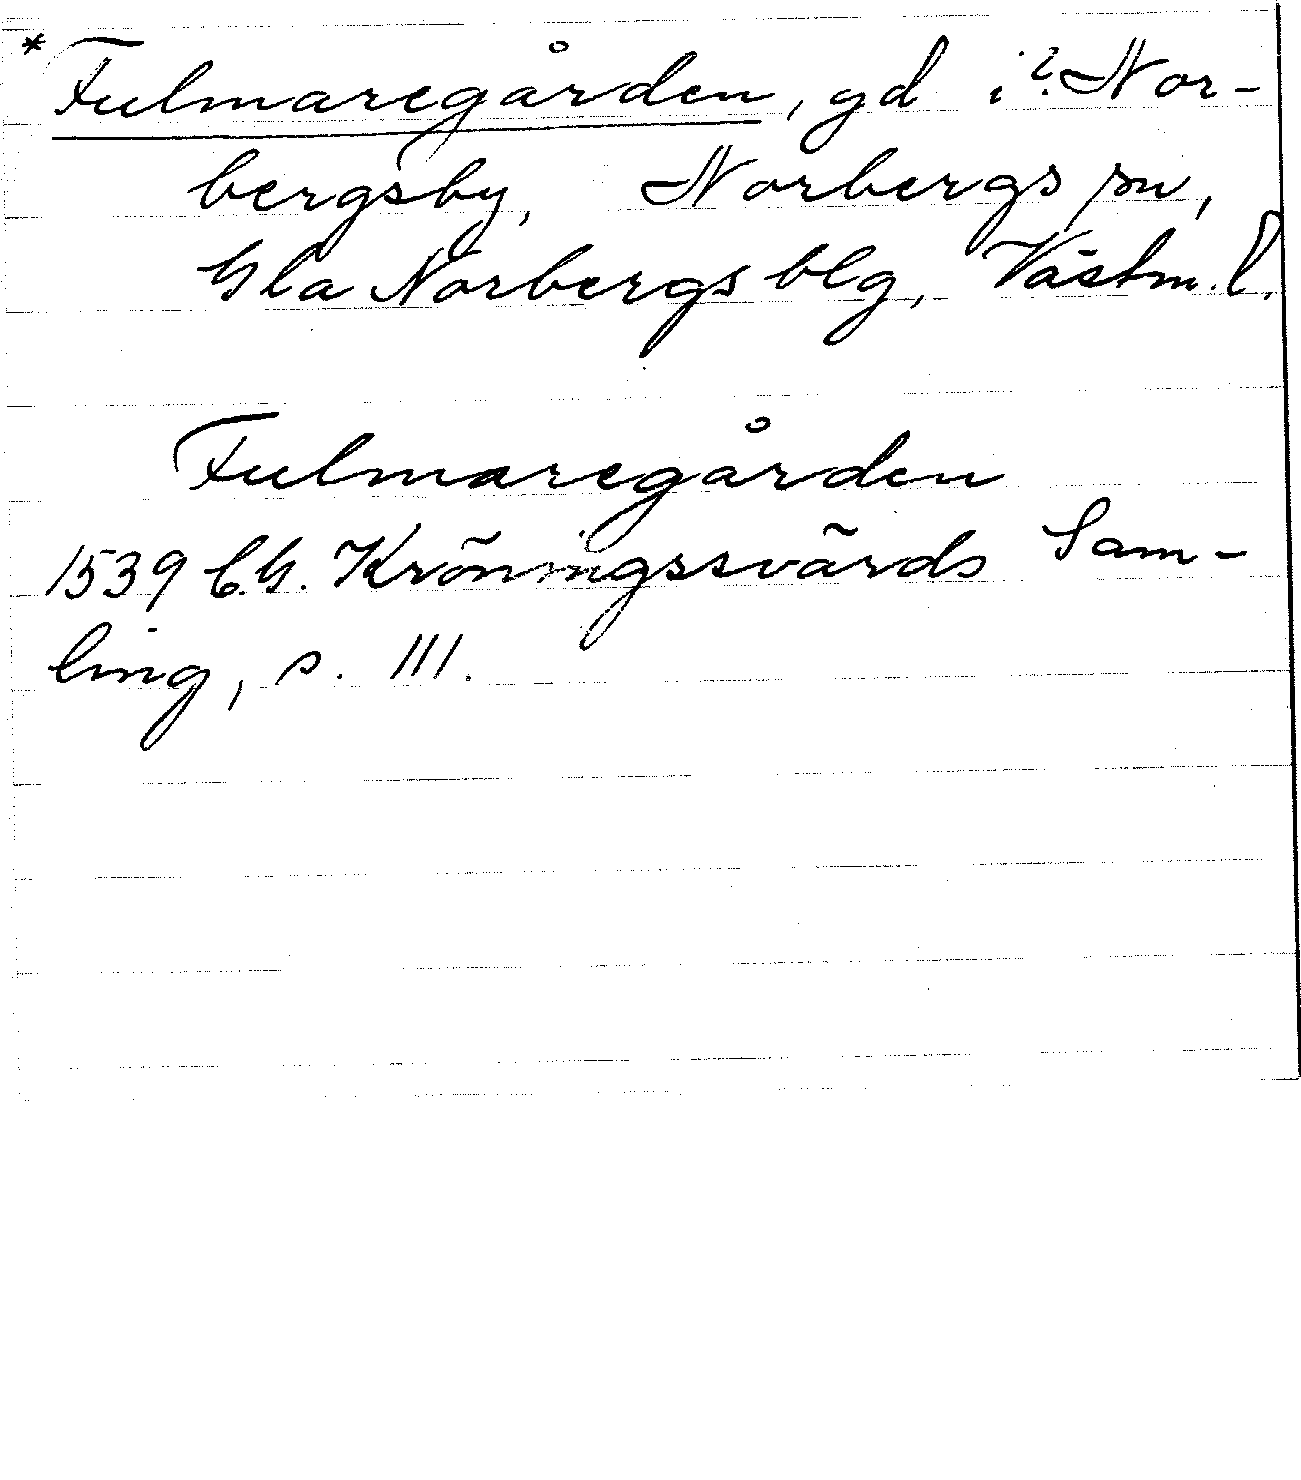 * Fulmaregården, gd i ? Nor-
bergsby, Norbergs sn,
Gla Norbergs blg, Västm. l.
Fulmaregården
1539 C.G. Kröningssvärds Sam-
ling, s. 111.